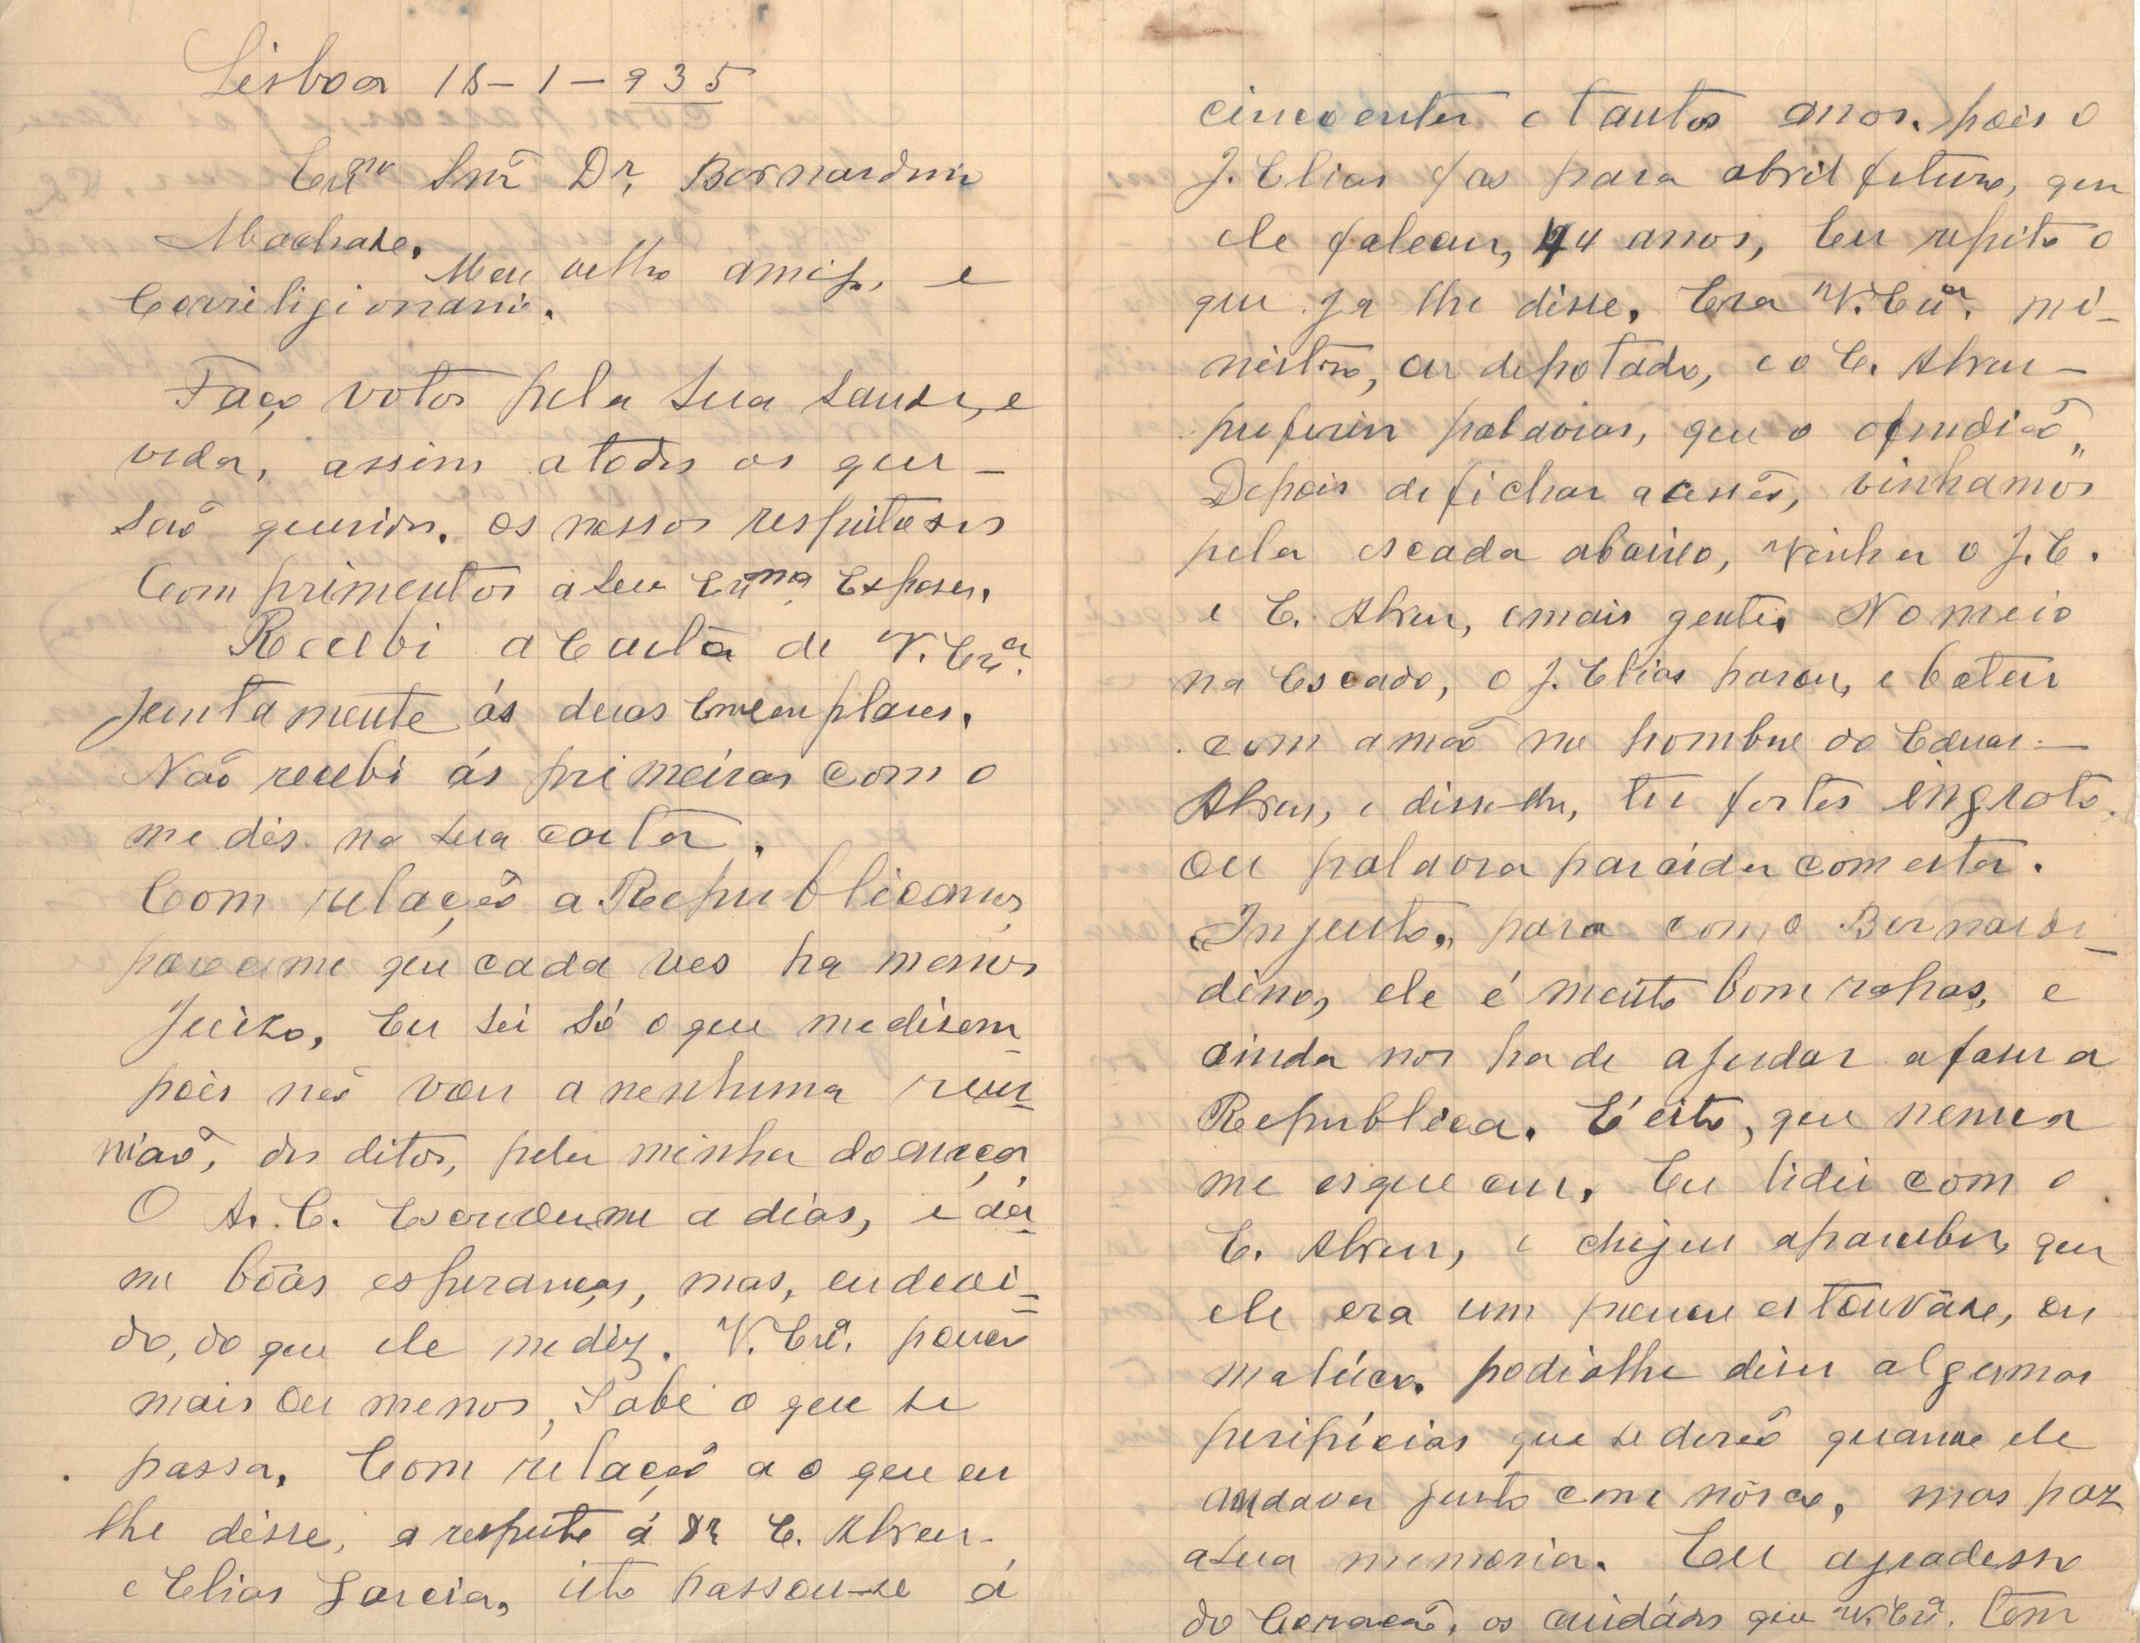 Lisboa 18-1-935
Exmo Snr Dr, Bernardino
Machado.
Meu velho amigo, e
Correligionario.
Faço votos pela sua saude, e
vida, assim a todos os que -
são queridos. Os nossos respeitosos
Comprimentos a sua Exma Esposa.
Recebi a Carta de V. Exa.
juntamente ás duas Emxemplares.
Não recebi ás primeiras como
me dis na sua carta.
Com relação a Republicanos,
parece me que cada ves ha menos
Juizo, Eu sei só o que me disem
pois não vou a nenhuma reu-
nião, dos ditos, pela minha doença,
O A. C. Escreveu me a dias, e dá-
me bôas esperanças, mas, eu duvi-
do, do que ele me diz. V. Exa. pouco
mais ou menos, Sabe o que se
passa, Com relação a o que eu
lhe disse, a respeito á Dr E. Abreu
e Elias Garcia, isto passou-se á
cincoenta e tantos anos. pois o
J. Elias fas para abril futuro, que
ele faleceu, 44 anos, Eu repito o
que ja lhe disse, Era V. Exa. mi-
nistro, ou depotado, e o E. Abreu -
preferiu palavras, que o ofendião,
Depois de fichar a cessão, vinhamos
pela escada abaixo, vinha o J. E.
e E. Abreu, e mais gente. No meio
na Escada, o J. Elias parou, e bateu
com a mão no hombro do Eduar-
Abreu, e disse-lhe, tu fostes ingrato.
ou palavra paraida com esta.
"Injusto", para com o Bernardi-
dino, ele é muito bom rapas, e
ainda nos ha de ajudar a faser a
Republica. E' isto, que nunca
me esqueceu. Eu lidei com o
E. Abreu, e cheguei a parceber, que
ele era um pouco estouvado, ou
malúco. podialhe diser algumas
peripécias que se derão quando ele
andava junto com nôsco, mas paz
a sua memoria. Eu agradesso
do Coração, os cuidádos que V. Exa. tem